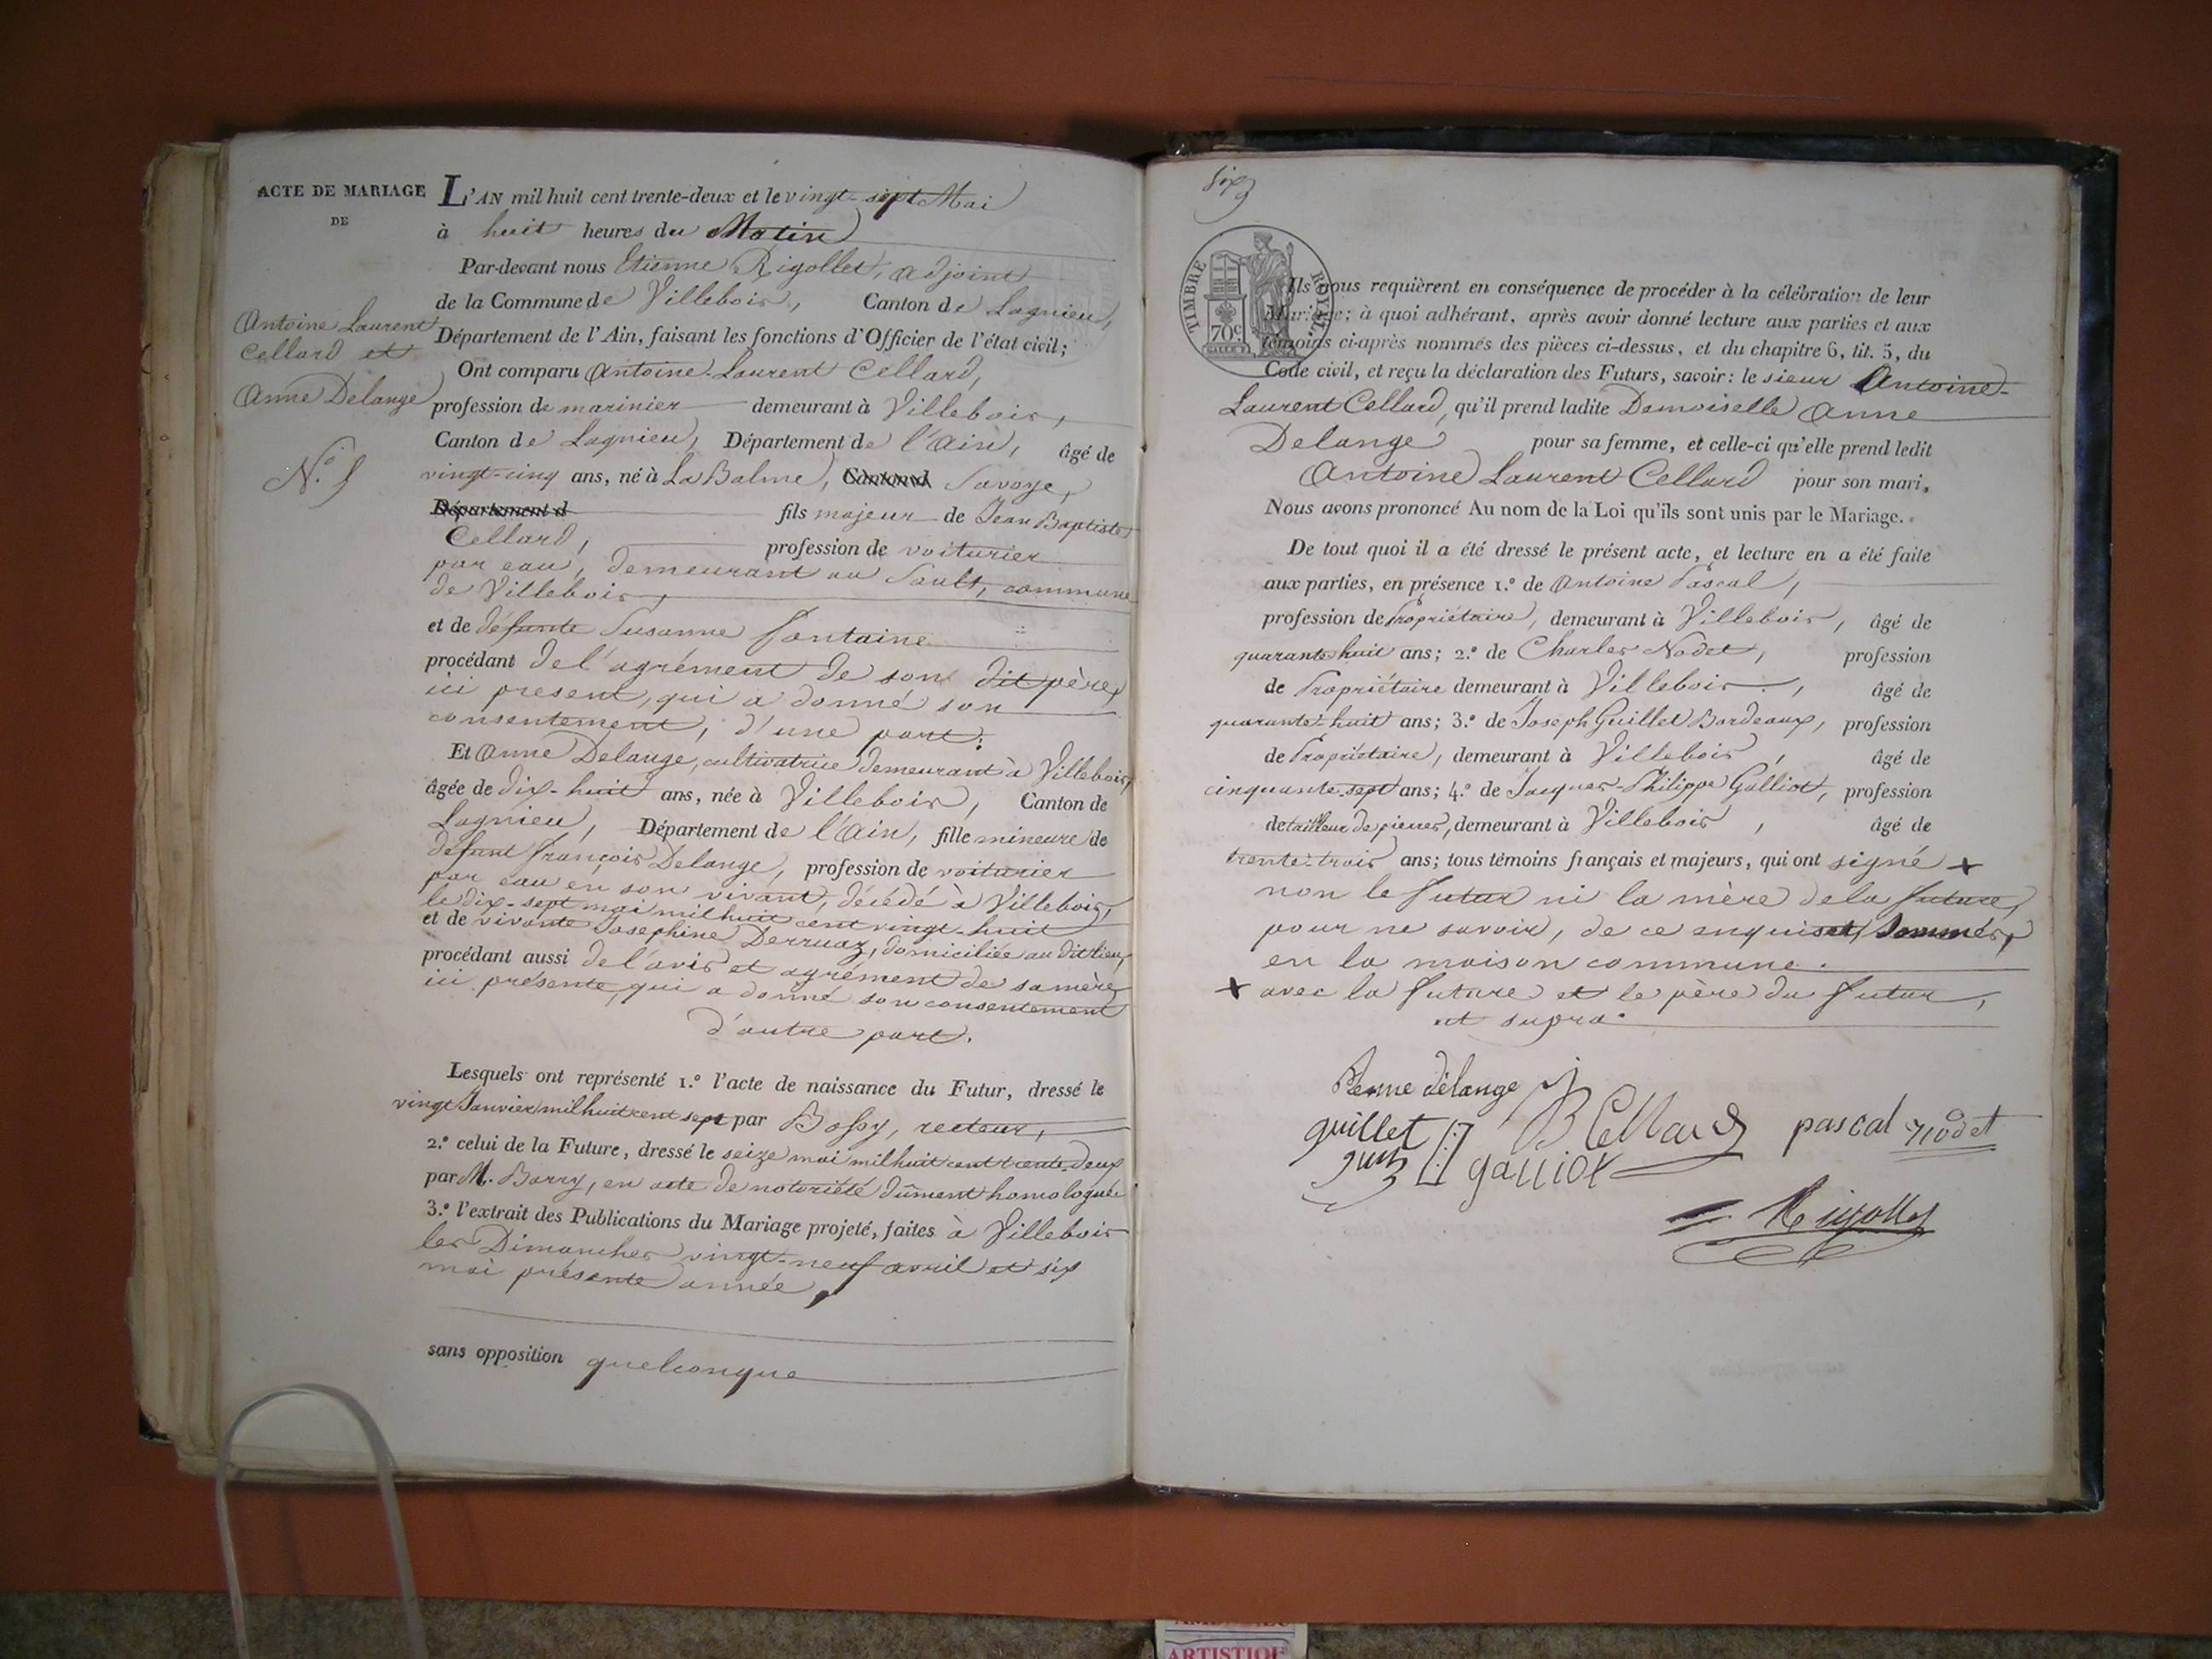 ACTE DE MARIAGE
DE
Antoine Laurent
Cellard et
Anne Delange
N.º 5
L'AN mil huit cent trente-deux et le vingt-sept Mai
à huit heures du Matin
Par-devant nous Etienne Rigollet, adjoint
de la Commune de Villebois, Canton de Lagnieu,
Département de l'Ain, faisant les fonctions d'Officier de l'état civil;
Ont comparu Antoine-Laurent Cellard,
profession de marinier demeurant à Villebois,
Canton de Lagnieu, Département de l'Ain, âgé de
vingt-cinq ans, né à La Balme, Canton d Savoye,
Département d fils majeur de Jean Baptiste
Cellard, profession de voiturier
par eau, demeurant au Sault, commune
de Villebois,
et de défunte Susanne Fontaine
procédant de l'agrément de son dit père,
ici present, qui a donné son
consentement, d'une part:
Et Anne Delange, cultivatrice demeurant à Villebois,
âgée de dix-huit ans, née à Villebois, Canton de
Lagnieu, Département de l'Ain, fille mineure de
défunt François Delange, profession de voiturier
par eau en son vivant, décédé à Villebois,
le dix-sept mai mil huit cent vingt-huit
et de vivante Josephine Derruaz, domiciliée au dit lieu,
procédant aussi de l'avis et agrément de sa mère
ici présente, qui a donné son consentement
d'autre part.
Lesquels ont représenté 1.º l'acte de naissance du Futur, dressé le
vingt Janvier mil huit cent sept par Bossy, recteur,
2.º celui de la Future, dressé le seize mai mil huit cent trente-deux
par M. Barry, en acte de notoriété dûment homologué
3.º l'extrait des Publications du Mariage projeté, faites à Villebois
les Dimanches vingt-neuf avril et six
mai présente année,
sans opposition quelconque
six
TIMBRE ROYAL
70 c.
Ils nous requièrent en conséquence de procéder à la célébration de leur
Mariage; à quoi adhérant, après avoir donné lecture aux parties et aux
témoins ci-après nommés des pièces ci-dessus, et du chapitre 6, tit. 5, du
Code civil, et reçu la déclaration des Futurs, savoir: le sieur Antoine-
Laurent Cellard, qu'il prend ladite Demoiselle Anne
Delange pour sa femme, et celle-ci qu'elle prend ledit
Antoine Laurent Cellard pour son mari,
Nous avons prononcé Au nom de la Loi qu'ils sont unis par le Mariage.
De tout quoi il a été dressé le présent acte, et lecture en a été faite
aux parties, en présence 1.º de Antoine Pascal,
profession de Propriétaire, demeurant à Villebois, âgé de
quarante-huit ans; 2.º de Charles Nodet, profession
de Propriétaire demeurant à Villebois, âgé de
quarante-huit ans; 3.º de Joseph Guillet Bordeaux, profession
de Propriétaire, demeurant à Villebois, âgé de
cinquante-sept ans; 4.º de Jacques-Philippe Galliot, profession
de tailleur de pierres, demeurant à Villebois, âgé de
trente-trois ans; tous témoins français et majeurs, qui ont signé x
non le futur ni la mère de la future,
pour ne savoir, de ce enquis et sommés,
en la maison commune.
x avec la future et le père du futur,
ut supra.
délange
J B Cellard
guillet
pascal
nodet
galliot
Rigollet
ARTISTIQUE